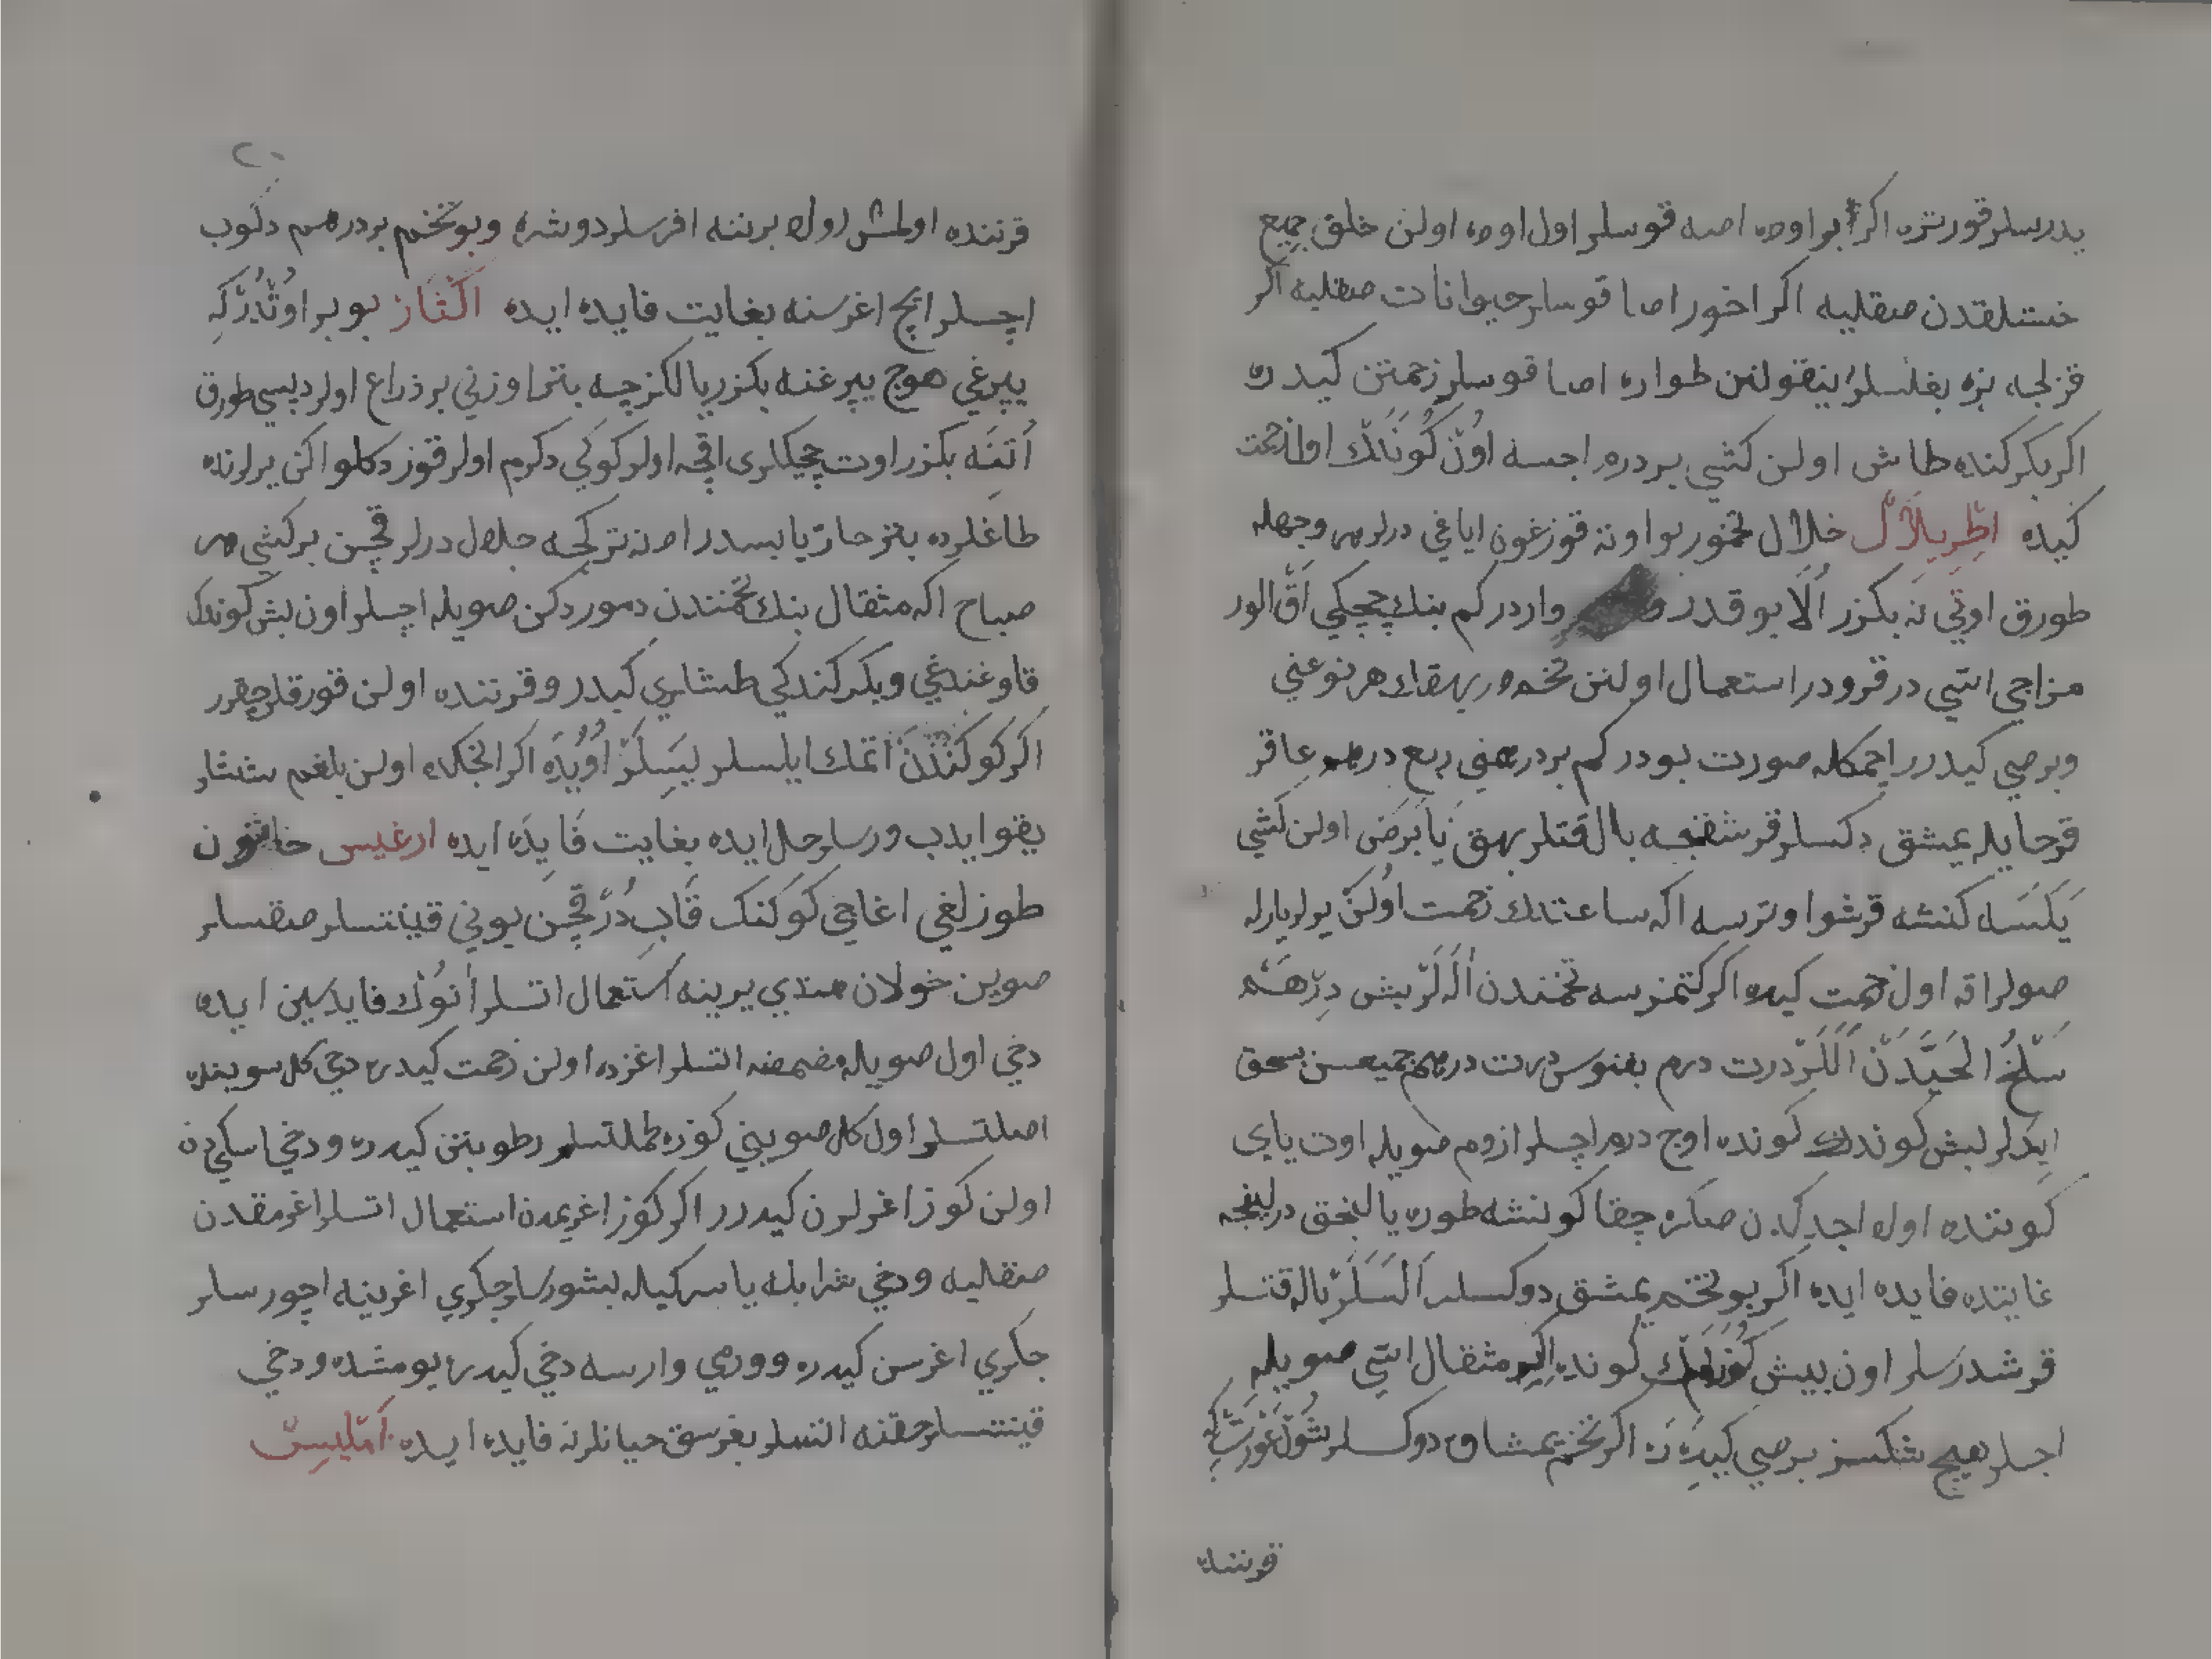 يدرسلر قورتره اكر بر اوه اصه قوسلر اول اوه اولن خلق جميع
خستلقدن صقليه اكر اخور اصا قوسلر حيوانات صقليه اكر
قزلجه بزه بغلسلر ينقولنن طواره اصا قوسلر زحمتن كيدره
اكر بكركنده طاش اولن كشي بر درم اجسه اون كونلك اوا زحمت
كيده اطريلال خلال تخمور بو اوته قوزغون اياغي درلر وجهله
طورق اوتي نه بكزر الا بو قدر واردر كم بنك چچكي اق الور
مزاجي اسي در قرودر استعمال اولنن تخمدر بهقك هر نوعني
وبرصي كيدرر اچمكله صورت بودر كم بر درهمي ربع درهم عاقر
قرحايله يمشق دكسلر قرشقنجه بال قتلر بهق يا برص اولن كشي
يكسه كنشه قرشو اوترسه اكه ساعتدك زحمت اولن يرلر ياريله
صولر اقه اول زحمت كيده اكر كتمزسه تخمندن اللر بش درهم
سلخ الحيدن اللر درت درم بغنوس درت درهم جميعسن سحق
ايدلر بش كوندك كونده اوچ درم اچلر ازوم صويله اوت ياي
كوننده اوله اجدكدن صكره چقا كونشه طوره يالنجق درلينجه
غايتده فايده ايده اكر بو تخم يمشق دوكسلر السلر باله قتسلر
قرشدرسلر اون بيش كونلك كونده اكي مثقال اسي صويله
اجسلر هيچ شكسز برصي كيدره اكر تخم يمشاق دوكسلر شول عورت كه
قرننده
قرننده اولمش اوله برننه افرسلر دوشره وبو تخم بر درهم دكوب
اچسلر ايچ اغرسنه بغايت فايده ايده اكثار بو بر اوتدركه
يپرغي هوج يپرغنه بكزر يالكزچه بتر اوزني بر ذراع اولر دپسي طورق
أتنه بكزر اوت چچكلري اقچه اولر كوكي دكرم اولر قوز دكلو اكن يرلرنده
طاغلرده بتر حار يابسدر اه نه تركجه جلال درلر قچن بر كشي هر
صباح اكه مثقال بنك تخمندن دمور دكن صويله اچسلر اون بش كوندك
قاوغندغي وبكركندكي طشلري كيدر وقرننده اولن قورقلر چقرر
اكر كوكندن اتمك ايلسلر ييسلر اويده اكر انحكاده اولن بلغم ششلر
يقو ايدب ورسلر حل ايده بغايت فايده ايده ارغيس خاتون
طوزلغي اغاجي كوكنك قابدر قچن بوني قينتسلر صقسلر
صوين خولان هندي يرينه استعمال اتسلر انوك فايدسين ايده
دخي اول صويله مضمضه اتسلر اغزده اولن زحمت كيدره دخي كل سوينده
اصلتسلر اول كل صويني كوزه طملتسلر رطوبتن كيدره ودخي اسكيدن
اولن كوز اغرلرن كيدرر اكر كوز اغريمدن استعمال اتسلر اغرمقدن
صقليه ودخي شرابله يا سركيله بشورسلر جكري اغرينه اچورسلر
جكري اغرسن كيدره وورمي وارسه دخي كيدره يومشده ودخي
قينتسلر حقنه اتسلر بغرسق حيانلرنه فايده ايده امليس